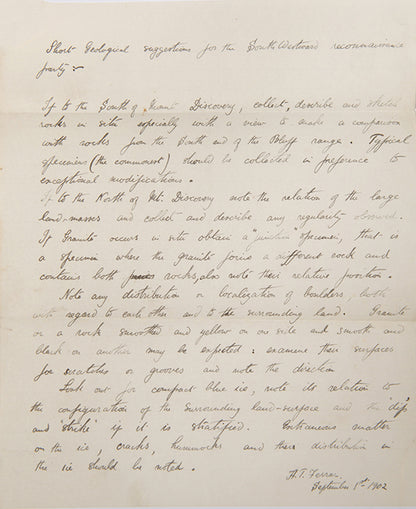 Short Geological suggestions for the Southwestward reconnaisance
party :-
If to the South of Mount Discovery, collect, describe and sketch
rocks in situ especially with a view to make a comparison
with rocks from the South end of the Bluff range. Typical
specimens (the commonest) should be collected in preference to
exceptional modifications.
If to the North of Mt. Discovery note the relation of the large
land-masses and collect and describe any regularity observed.
If Granite occurs in situ obtain a "junction specimen, that is
a specimen where the granite joins a different rock and
contains both rocks, also note their relative position.
Note any distribution or localization of boulders, both
with regard to each other and to the surrounding land. Granite
or a rock smoothed and yellow on one side and smooth and
black on another may be expected: examine their surfaces
for scratches or grooves and note the direction
Look out for compact blue ice, note its relation to
the configuration of the surrounding land-surface and the 'dip
and strike' if it is stratified. Extraneous matter
on the ice, cracks, hummocks and their distribution in
the ice should be noted.
H.T. Ferrar.
September 1st 1902